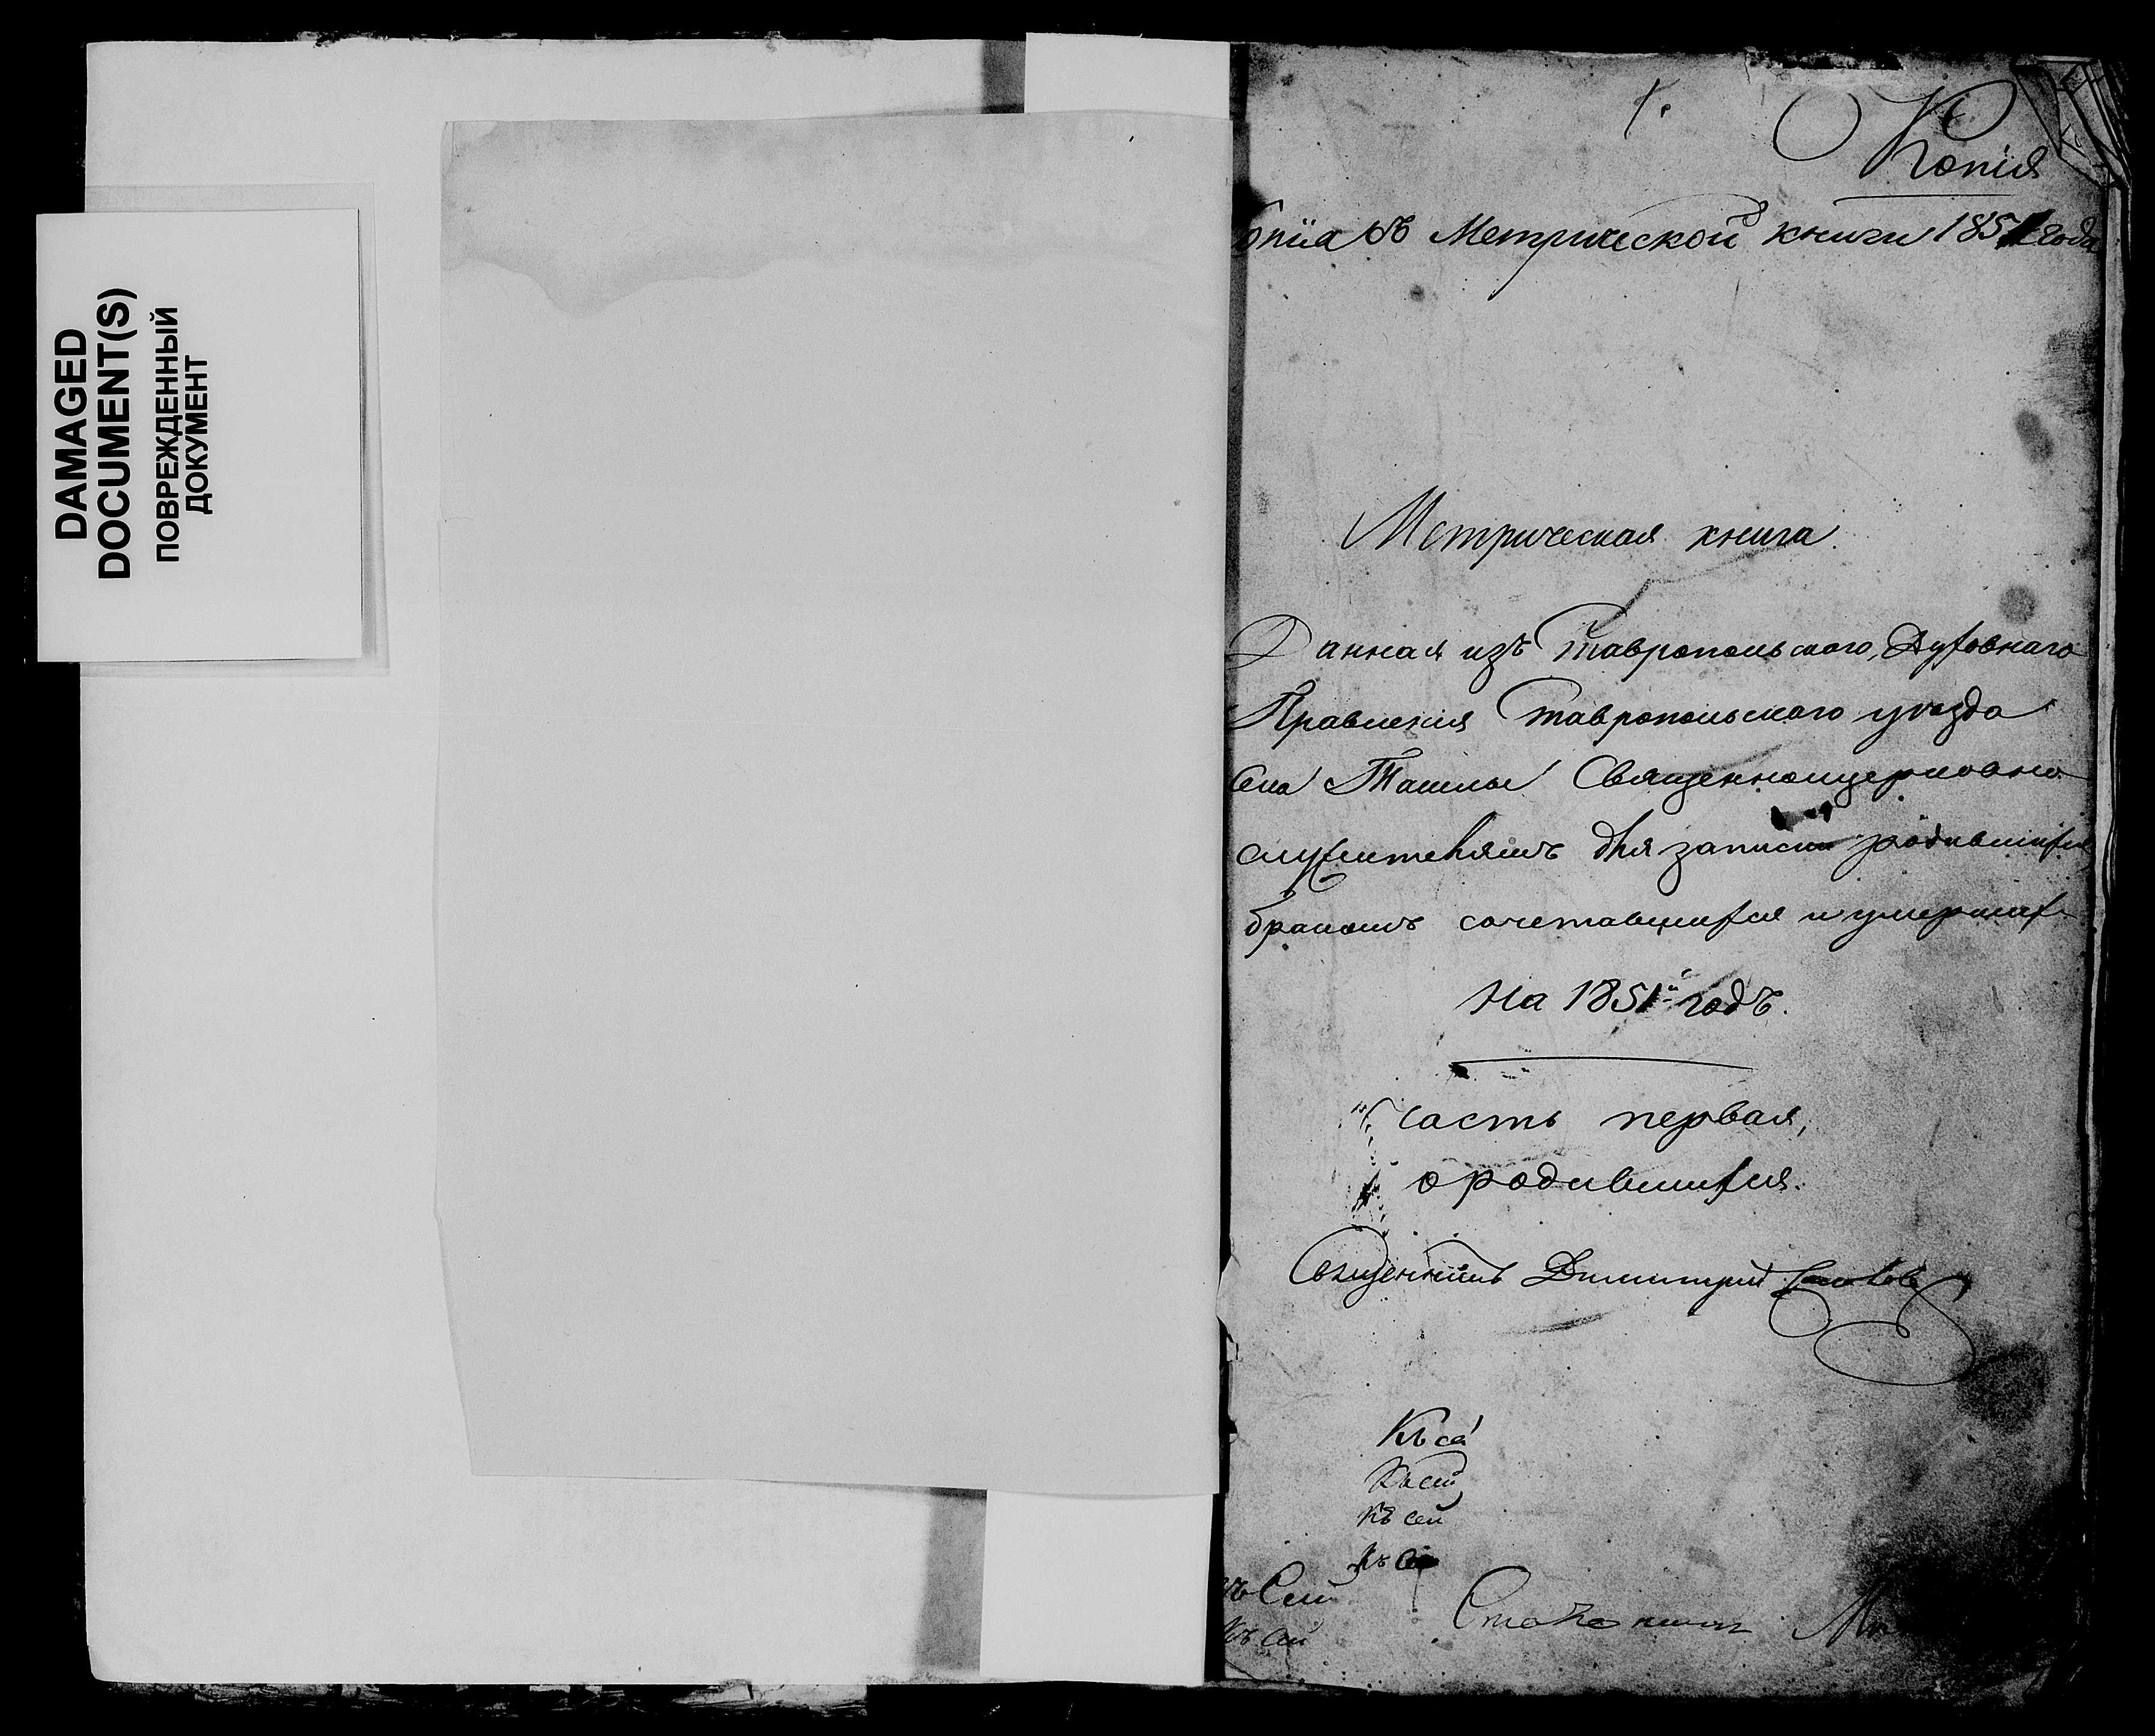 DAMAGED
DOCUMENT(S)
ПОВРЕЖДЕННЫЙ
ДОКУМЕНТ
Копія
опіа съ Метрической книги 1851 года
Метрическая книга.
Данная изъ Ставропольского, Духовнаго
Правленія Ставропольского уѣзда
Села Ташлы Священноцерковно
служителямъ для записки родившихся,
бракомъ сочетавшихся и умершихъ
на 1851й годъ.
Часть первая,
о родившихся.
Священникъ Димитрий
Къ се
Къ сей
Къ сей
Къ
ъ Сей
Къ сей